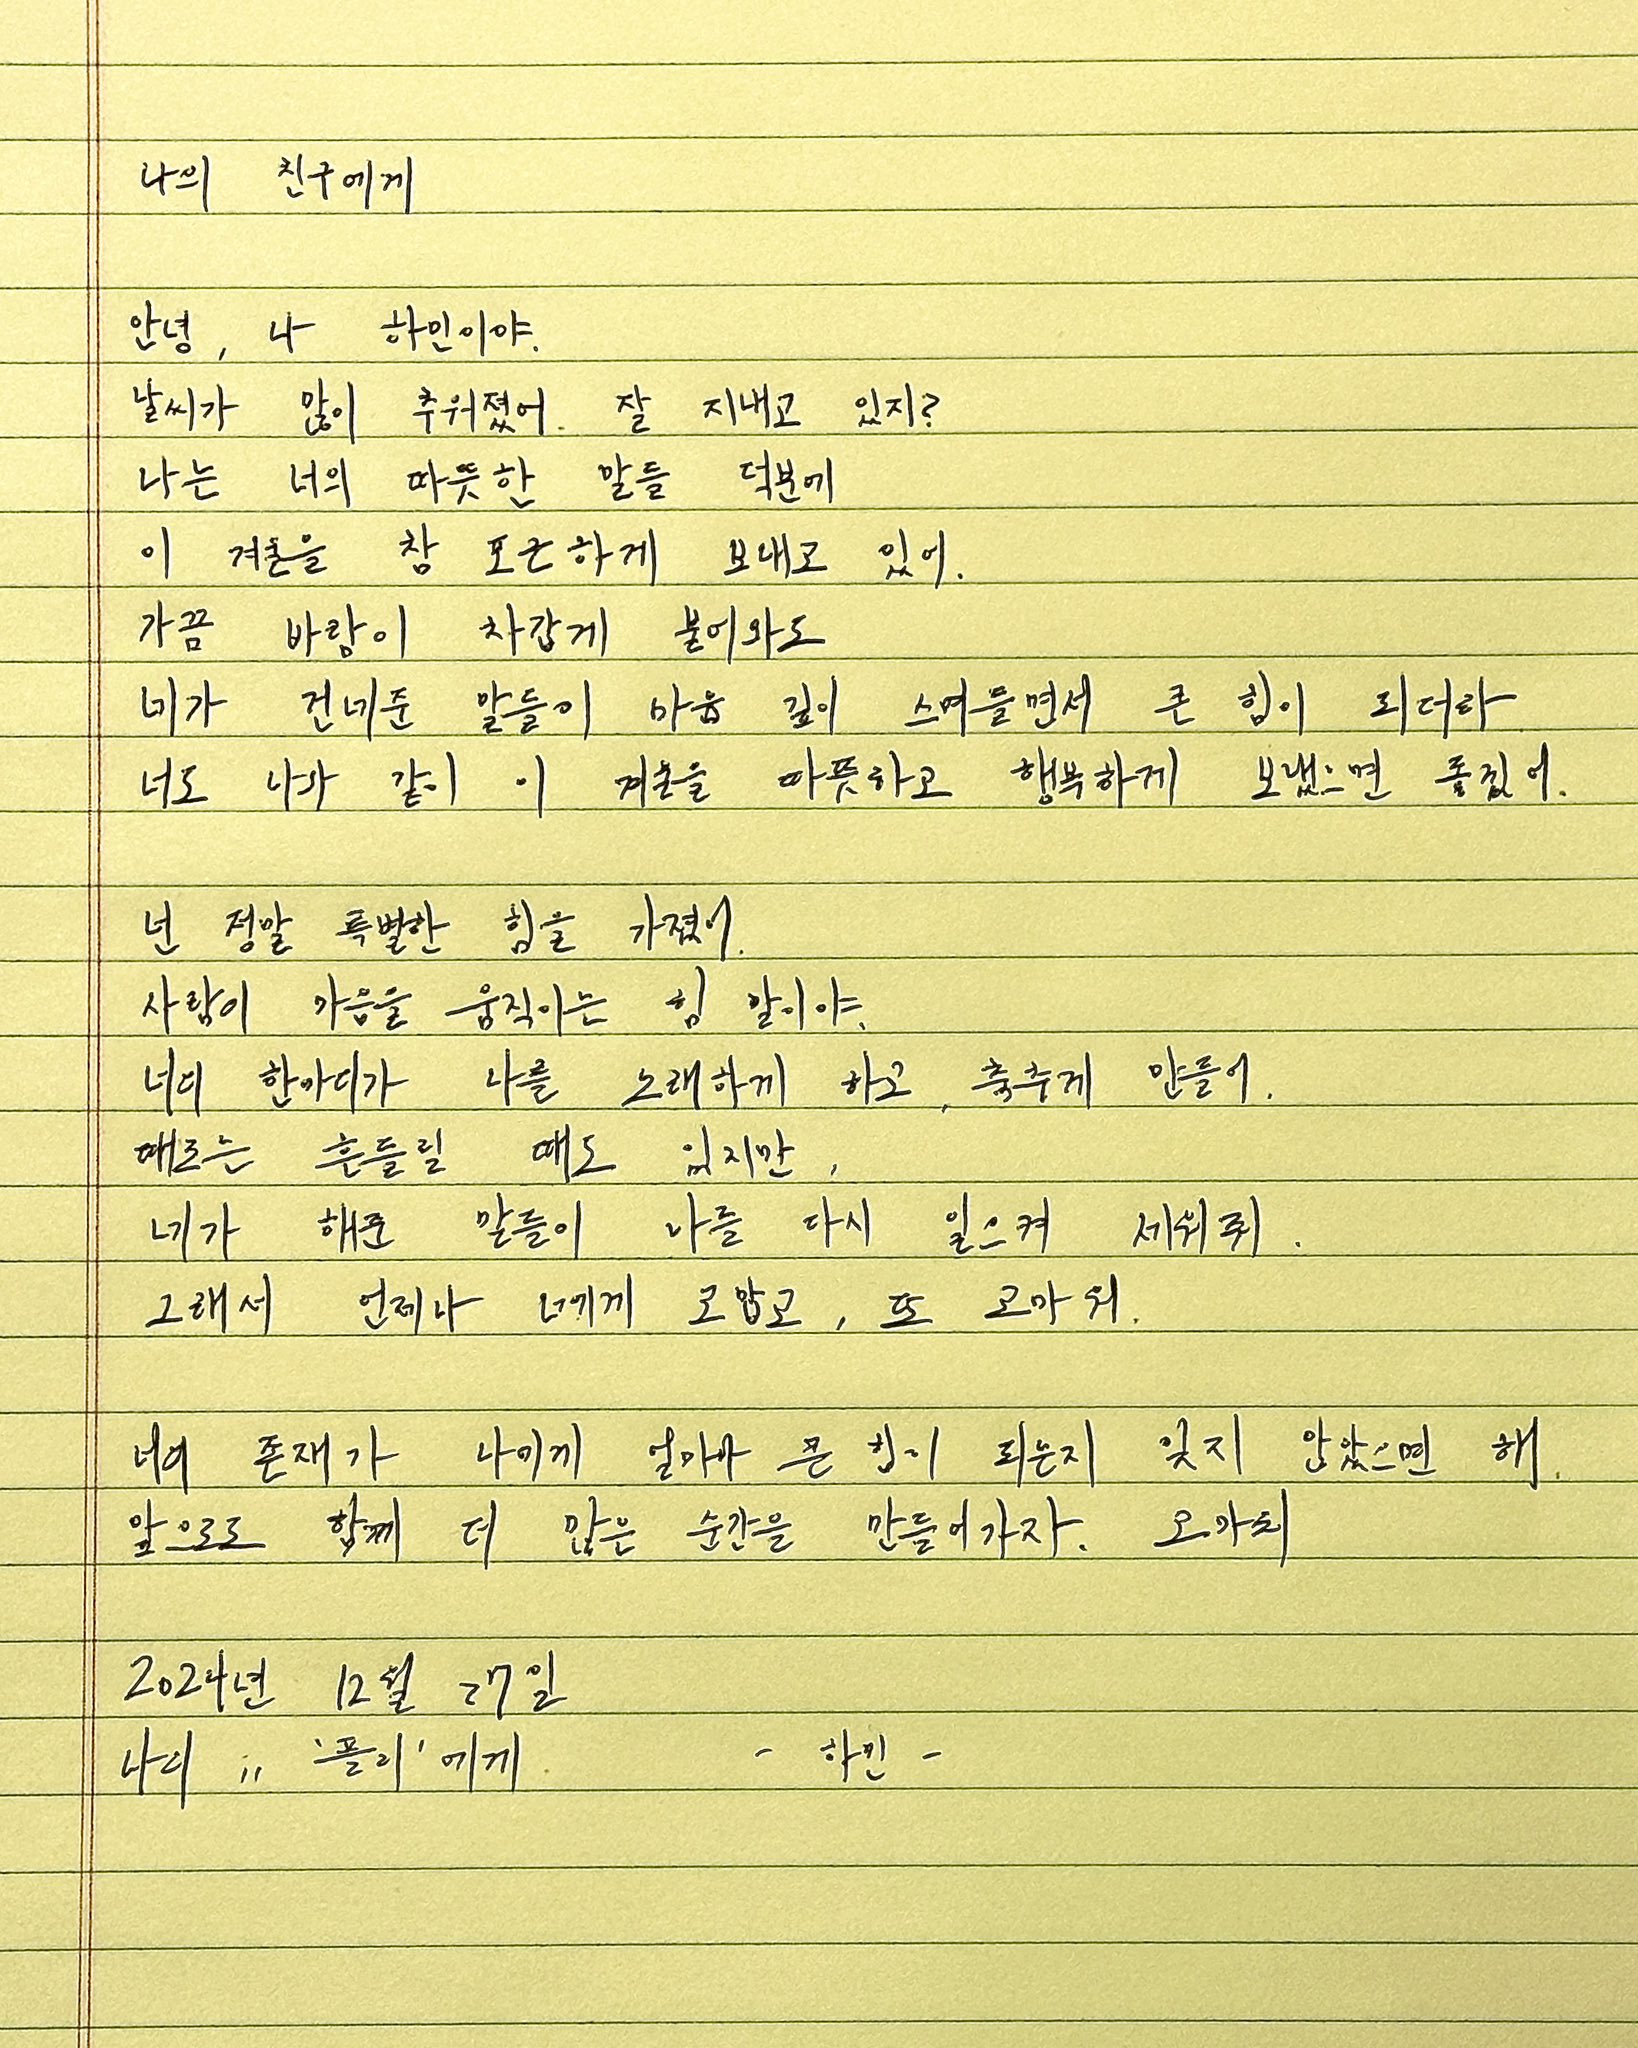 나의 친구에게
안녕, 나 하민이야.
날씨가 많이 추워졌어. 잘 지내고 있지?
나는 너의 따뜻한 말들 덕분에
이 겨울을 참 포근하게 보내고 있어.
가끔 바람이 차갑게 불어와도
네가 건네준 말들이 마음 깊이 스며들면서 큰 힘이 되더라
너도 나와 같이 이 겨울을 따뜻하고 행복하게 보냈으면 좋겠어.
넌 정말 특별한 힘을 가졌어.
사람이 마음을 움직이는 힘 말이야.
너의 한마디가 나를 노래하게 하고, 춤추게 만들어.
때로는 흔들릴 때도 있지만,
네가 해준 말들이 나를 다시 일으켜 세워줘.
그래서 언제나 너에게 고맙고, 또 고마워.
너의 존재가 나에게 얼마나 큰 힘이 되는지 잊지 않았으면 해.
앞으로도 함께 더 많은 순간을 만들어가자. 고마워
2024년 12월 27일
나의 ;; '플리'에게 - 하민 -